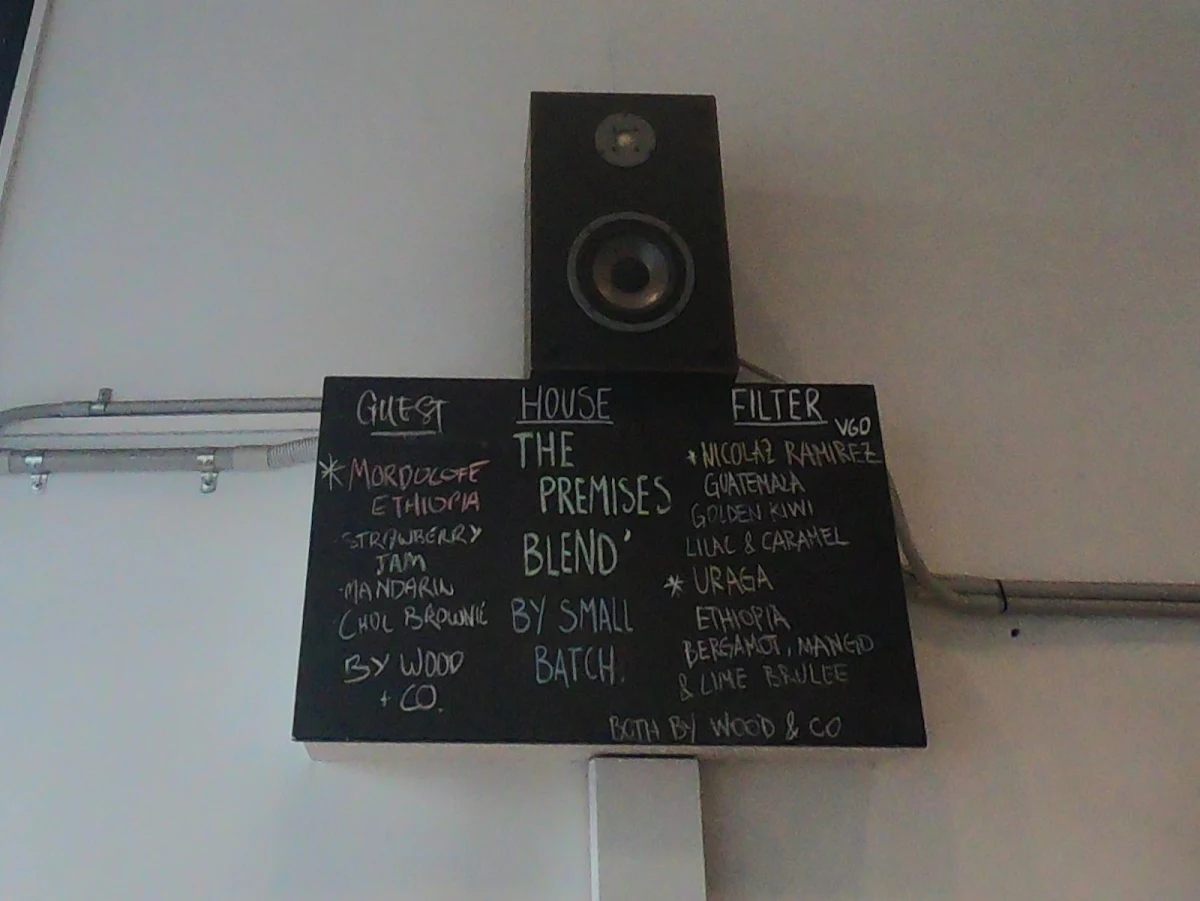 GUEST
* MORDOCOFE
ETHIOPIA
STRAWBERRY
JAM
MANDARIN
CHOC BROWNIE
BY WOOD
+ CO.
HOUSE
THE
PREMISES
BLEND'
BY SMALL
BATCH.
FILTER
VGO
* NICOLAZ RAMIREZ
GUATEMALA
GOLDEN KIWI
LILAC & CARAMEL
* URAGA
ETHIOPIA
BERGAMOT, MANGO
& LIME BRULEE
BOTH BY WOOD & CO